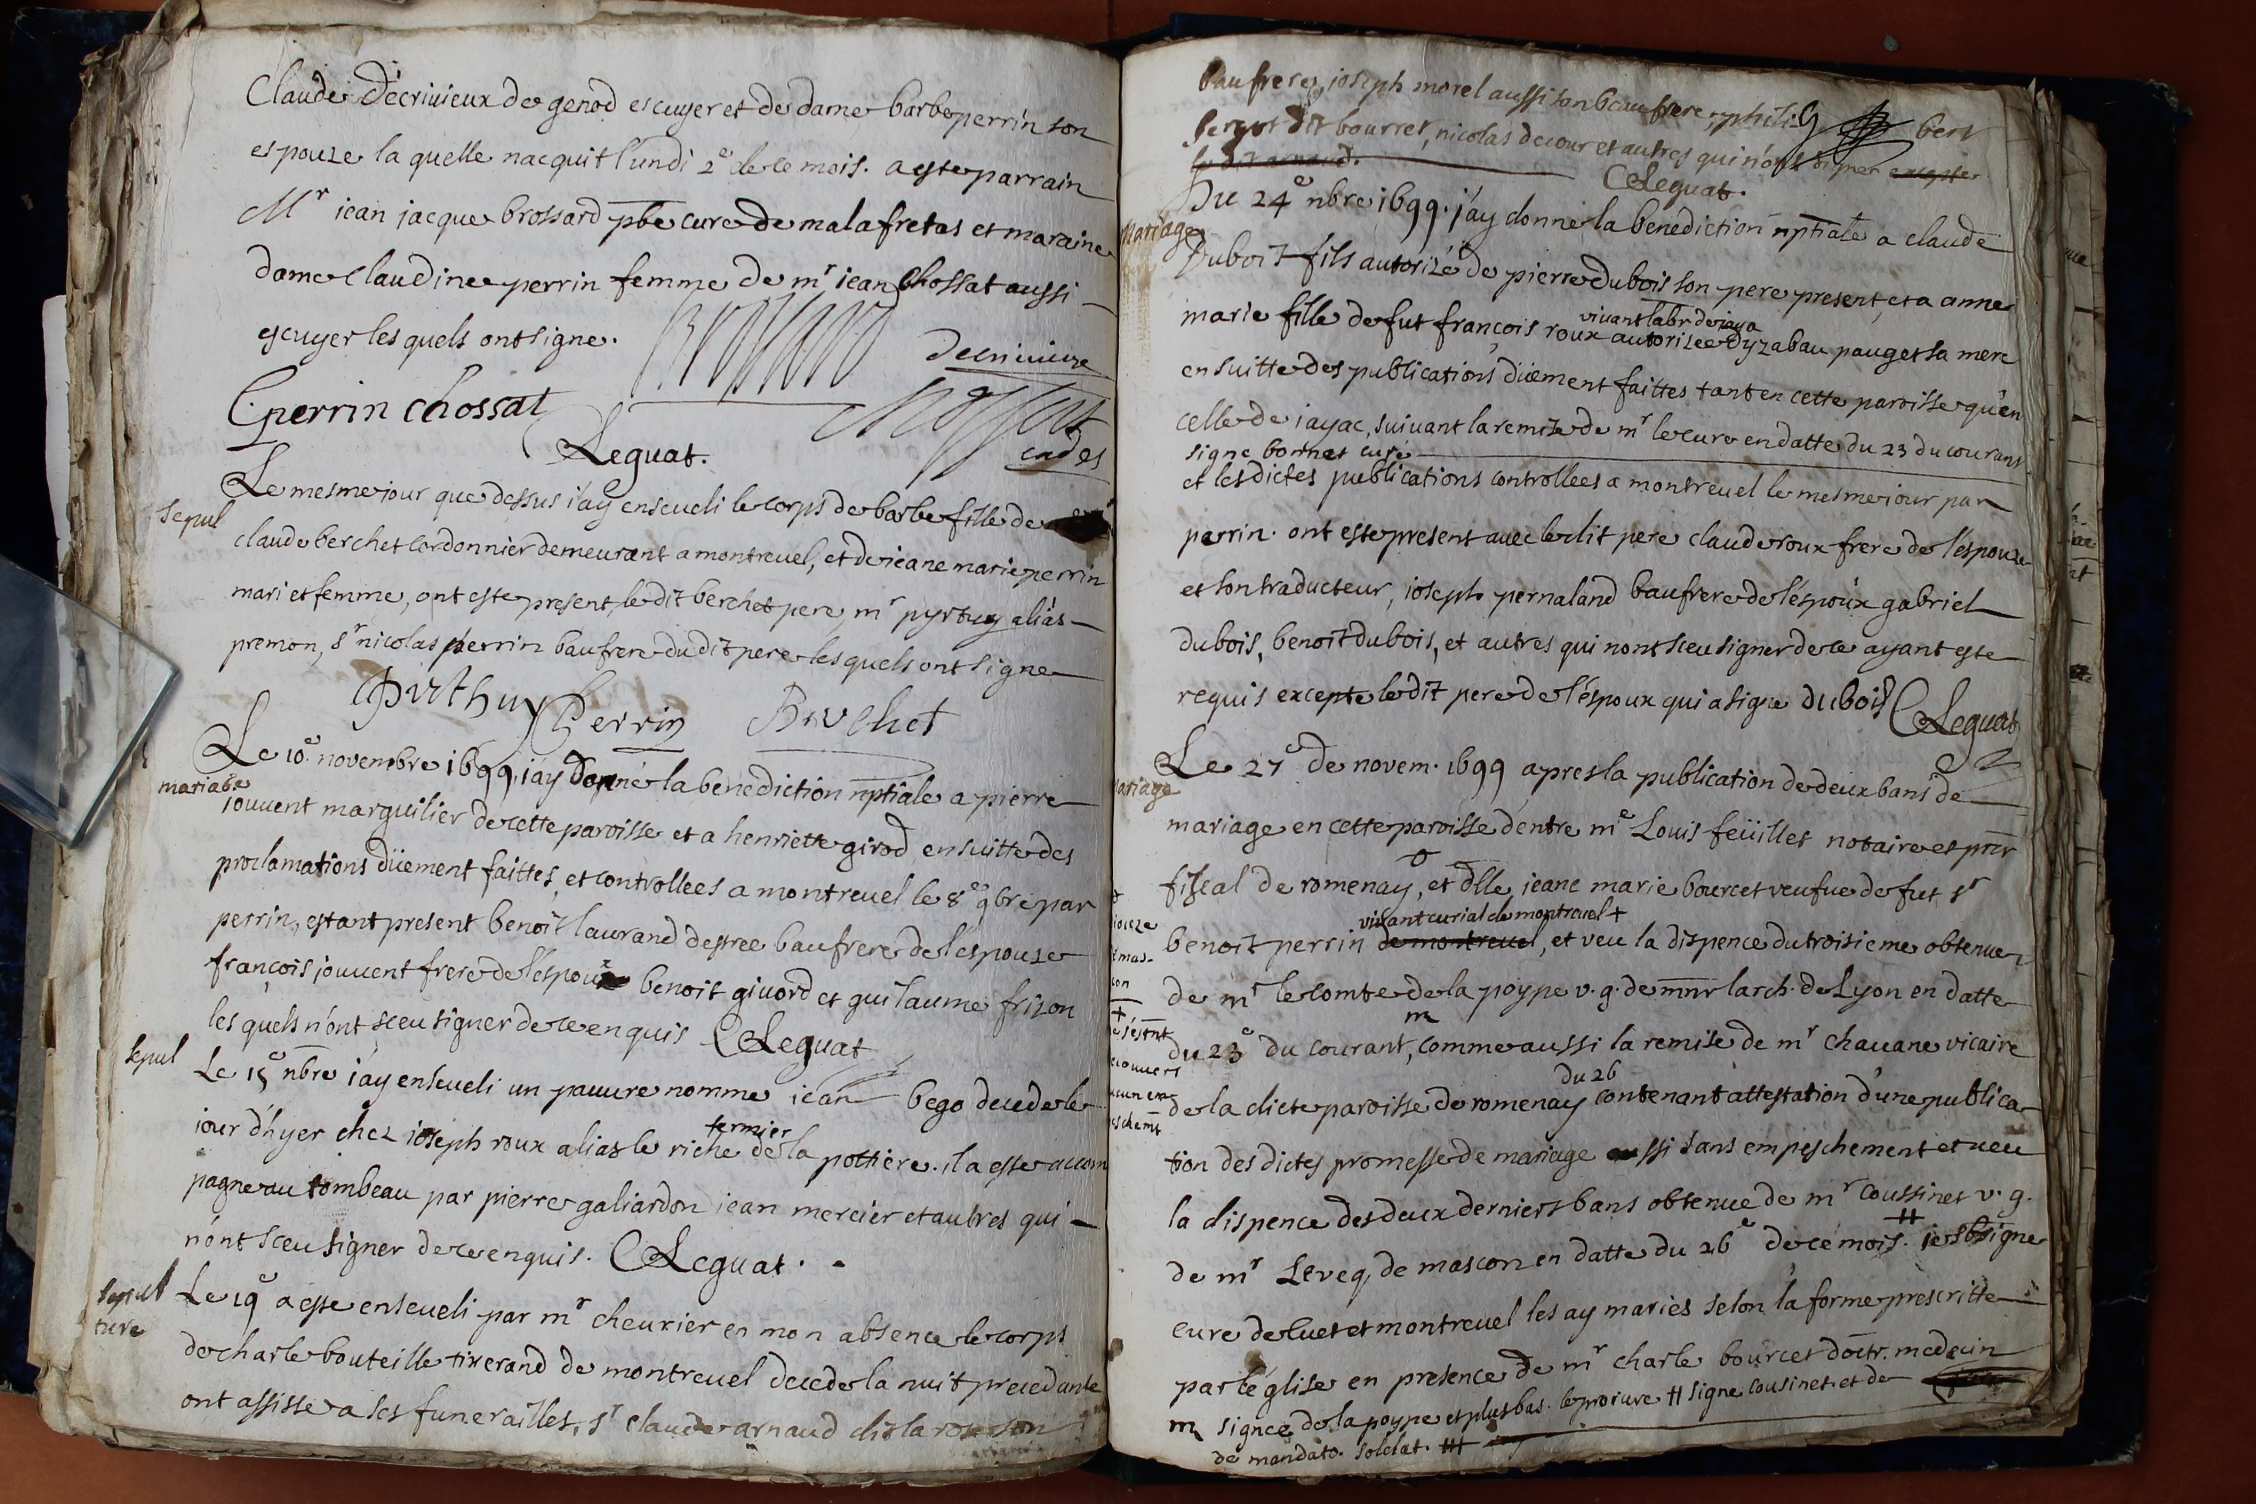 Claude décriuieux de genod escuyer et de dame barbe perrin son
espouze la quelle nacquit lundi 2e de ce mois. a este parrain
Mr jean jacque brossard pbe cure de malafretas et maraine
dame claudine perrin femme de mr jean chossat aussi
escuyer les quels ont signe.
decriuieux
C perrin chossat
Leguat.
Le mesme jour que dessus i'ay enseueli le corps de barbe fille de
sepul
claude berchet cordonnier demeurant a montreuel, et de jeane marie perrin
mari et femme, ont este present, le dit berchet pere, mr pyrtuy aliàs
premon, sr nicolas perrin baufrere du dit pere les quels ont signe
Pirthuy Perrin Bruchet
Le 10e novembre 1699, i'ay donné la benediction nptiale a pierre
mariage
jouuent marguilier de cette paroisse et a henriette girod ensuitte des
proclamations düement faittes, et controllees a montreuel le 8e 9bre par
perrin, estant present benoit laurand degree baufrere de l'espouse
françois jouuent frere de l'espoux benoit giuord et guilaume frizon
les quels n'ont sceu signer de ce enquis Leguat
sepul
Le 15e nbre i'ay enseueli un pauure nomme jean bego decede le
jour d'hyer chez joseph roux alias le riche fermier de la pottiere. il a este accom
pagne au tombeau par pierre galiardon jean mercier et autres qui
n'ont sceu signer de ce enquis. Leguat.
sepul
ture
Le 19e a este enseueli par mr cheurier en mon absence le corps
de charle bouteille tixerand de montreuel decede la nuit precedante
ont assisse a ses funerailles, sr claude arnaud dis la rose son
baufrere, joseph morel aussi son beaufrere, phili
bert
dit bourret, nicolas decour et autres qui n'ont signer excepte
le dit arnaud.
Leguat.
Mariage
Du 24e nbre 1699. j'ay donne la benediction nptiale a claude
Duboit fils autorizé de pierre dubois son pere present, et a anne
marie fille de fut françois roux vivant labr de jaya autorisee d'yzabau pauget sa mere
ensuitte des publications düement faittes tant en cette paroisse qu'en
celle de jayac, suiuant la remise de mr le cure en datte du 23 du courant
signe bornet cure
et les dictes publications controllees a montreuel le mesme jour par
perrin. ont este present auec le dit pere claude roux frere de l'espouze
et son traducteur, joseph pernaland baufrere de l'époux gabriel
dubois, benoit dubois, et autres qui nont sceu signer de ce ayant este
requis excepte le dit pere de l'époux qui a signe dubois Leguat
mariage
Le 27e de novem. 1699 apres la publication de deux bans de
mariage en cette paroisse d'entre me Louis feüillet notaire et pmr
fiscal de romenay, et dlle jeane marie bourcet veufue de fut sr
benoit perrin vivant curial de montreuel + de montreuel, et veu la dispence du troisieme obtenue
de mr le comte de la poype v. g. de mnr l'arch. de Lyon en datte
du 23e du courant, comme aussi la remise de mr chauane vicaire
de la dicte paroisse de romenay du 26 contenant attestation d'une publica
tion des dictes promesse de mariage aussi sans empeschement et veu
la dispence des deux derniers bans obtenue de mr coussinet v. g.
de mr Leveq, de mascon en datte du 26e de ce mois. je sbsigne
cure de cuet et montreuel les ay maries selon la forme prescritte
par l'église en presence de mr charle bourcet doctr. medecin
m signee de la poype et plus bas. le procure # signe cousinet. et de
de mandato. soldat. ##